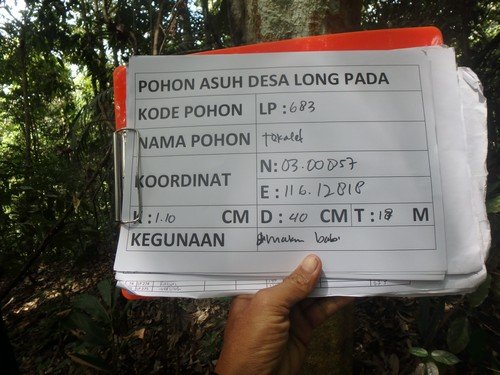 POHON ASUH DESA LONG PADA
KODE POHON LP : 683
NAMA POHON
KOORDINAT N: 03.00057
E : 116.12818
: 1.10 CM D : 40 CM T : 18 M
KEGUNAAN makan babi